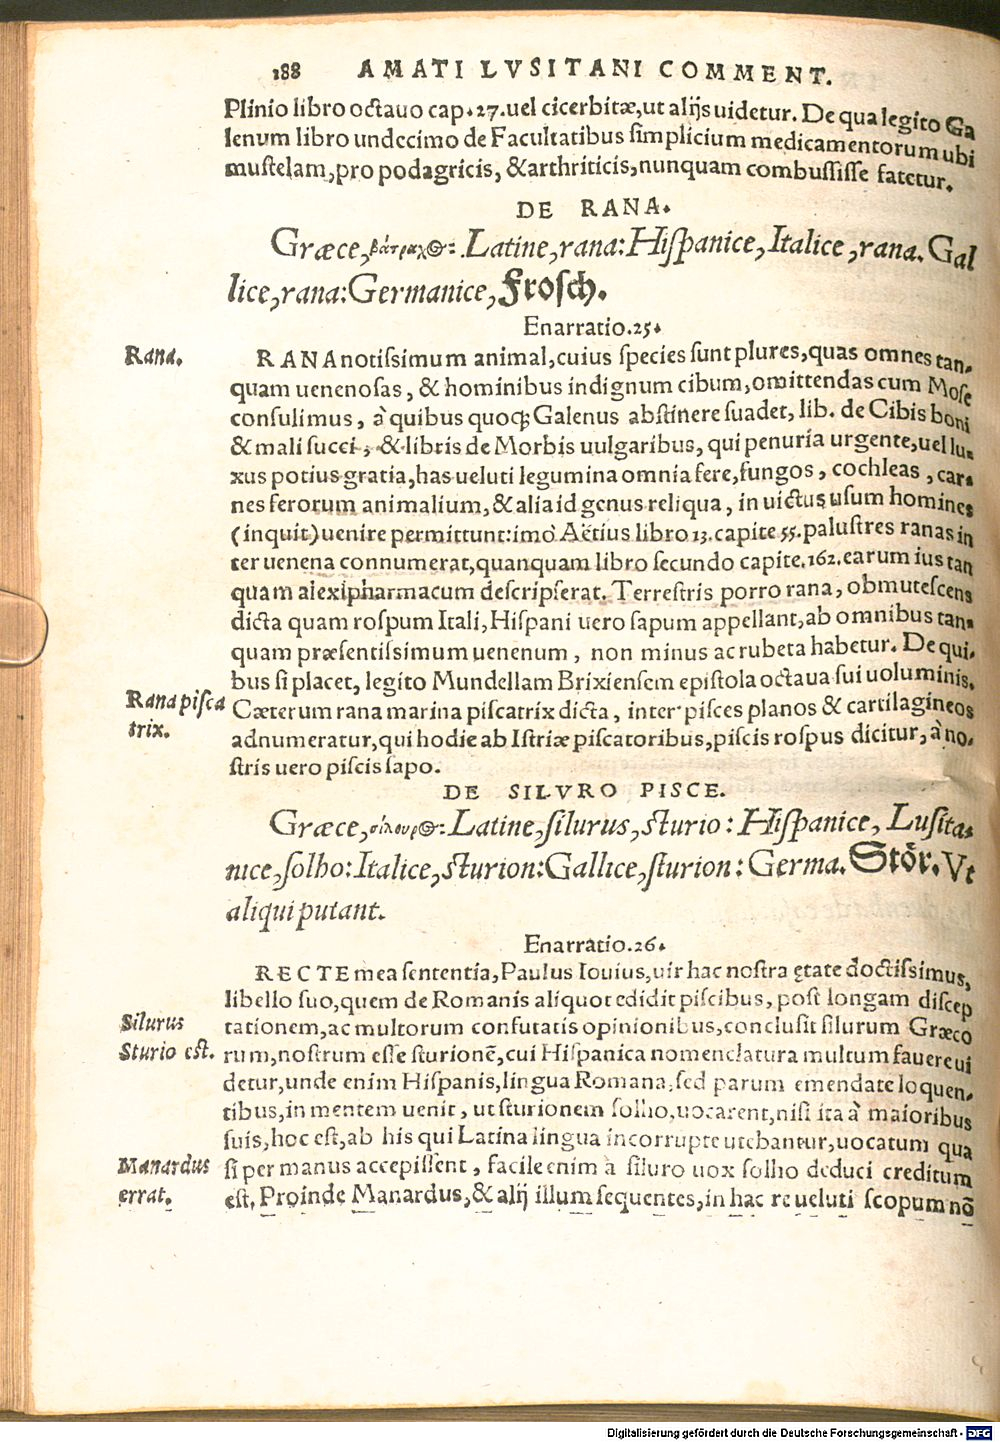 188 AMATI LVSITANI COMMENT.
Plinio libro octauo cap.27.uel cicerbitæ,ut alijs uidetur. De qua legito Ga
lenum libro undecimo de Facultatibus ſimplicium medicamentorum ubi
muſtelam,pro podagricis, &arthriticis,nunquam combuſſiſſe fatetur.
DE RANA.
Græce,βάτραχος: Latine,rana:Hiſpanice,Italice,rana. Gal
lice,rana:Germanice, Froſch.
Enarratio.25.
Rana.
RANA notiſsimum animal,cuius ſpecies ſunt plures,quas omnes tan-
quam uenenoſas, & hominibus indignum cibum,omittendas cum Moſe
conſulimus, à quibus quoq; Galenus abſtinere ſuadet, lib. de Cibis boni
& mali ſucci, & libris de Morbis uulgaribus, qui penuria urgente,uel lu-
xus potius gratia,has ueluti legumina omnia fere,fungos, cochleas, car-
nes ferorum animalium,& alia id genus reliqua, in uictus uſum homines
(inquit)uenire permittunt:imò Aëtius libro 13.capite 55.paluſtres ranas in
ter uenena connumerat,quanquam libro ſecundo capite.162.earum ius tan
quam alexipharmacum deſcripſerat. Terreſtris porro rana, obmuteſcens
dicta quam roſpum Itali, Hiſpani uero ſapum appellant,ab omnibus tan-
quam præſentiſsimum uenenum, non minus ac rubeta habetur. De qui-
bus ſi placet, legito Mundellam Brixienſem epiſtola octaua ſui uoluminis.
Rana piſca
trix.
Cæterum rana marina piſcatrix dicta, inter piſces planos & cartilagineos
adnumeratur,qui hodie ab Iſtriæ piſcatoribus,piſcis roſpus dicitur, à no-
ſtris uero piſcis ſapo.
DE SILVRO PISCE.
Græce,σίλουρος: Latine,ſilurus,ſturio: Hiſpanice, Luſita-
nice,ſolho:Italice,ſturion:Gallice,ſturion: Germa. Stör. Vt
aliqui putant.
Enarratio.26.
RECTE mea ſententia,Paulus Iouius,uir hac noſtra ętate doctiſsimus,
libello ſuo,quem de Romanis aliquot edidit piſcibus, poſt longam diſcep
Silurus
Sturio eſt.
tationem,ac multorum confutatis opinionibus,concluſit ſilurum Græco
rum,noſtrum eſſe ſturionē,cui Hiſpanica nomenclatura multum fauere ui
detur,unde enim Hiſpanis,lingua Romana,ſed parum emendate loquen-
tibus,in mentem uenit, ut ſturionem ſolho,uocarent,niſi ita à maioribus
ſuis,hoc eſt,ab his qui Latina lingua incorrupte utebantur,uocatum qua
Manardus
errat.
ſi per manus accepiſſent, facile enim à ſiluro uox ſolho deduci creditum
eſt. Proinde Manardus,& alij illum ſequentes,in hac re ueluti ſcopum nō
Digitalisierung gefördert durch die Deutsche Forschungsgemeinschaft - DFG